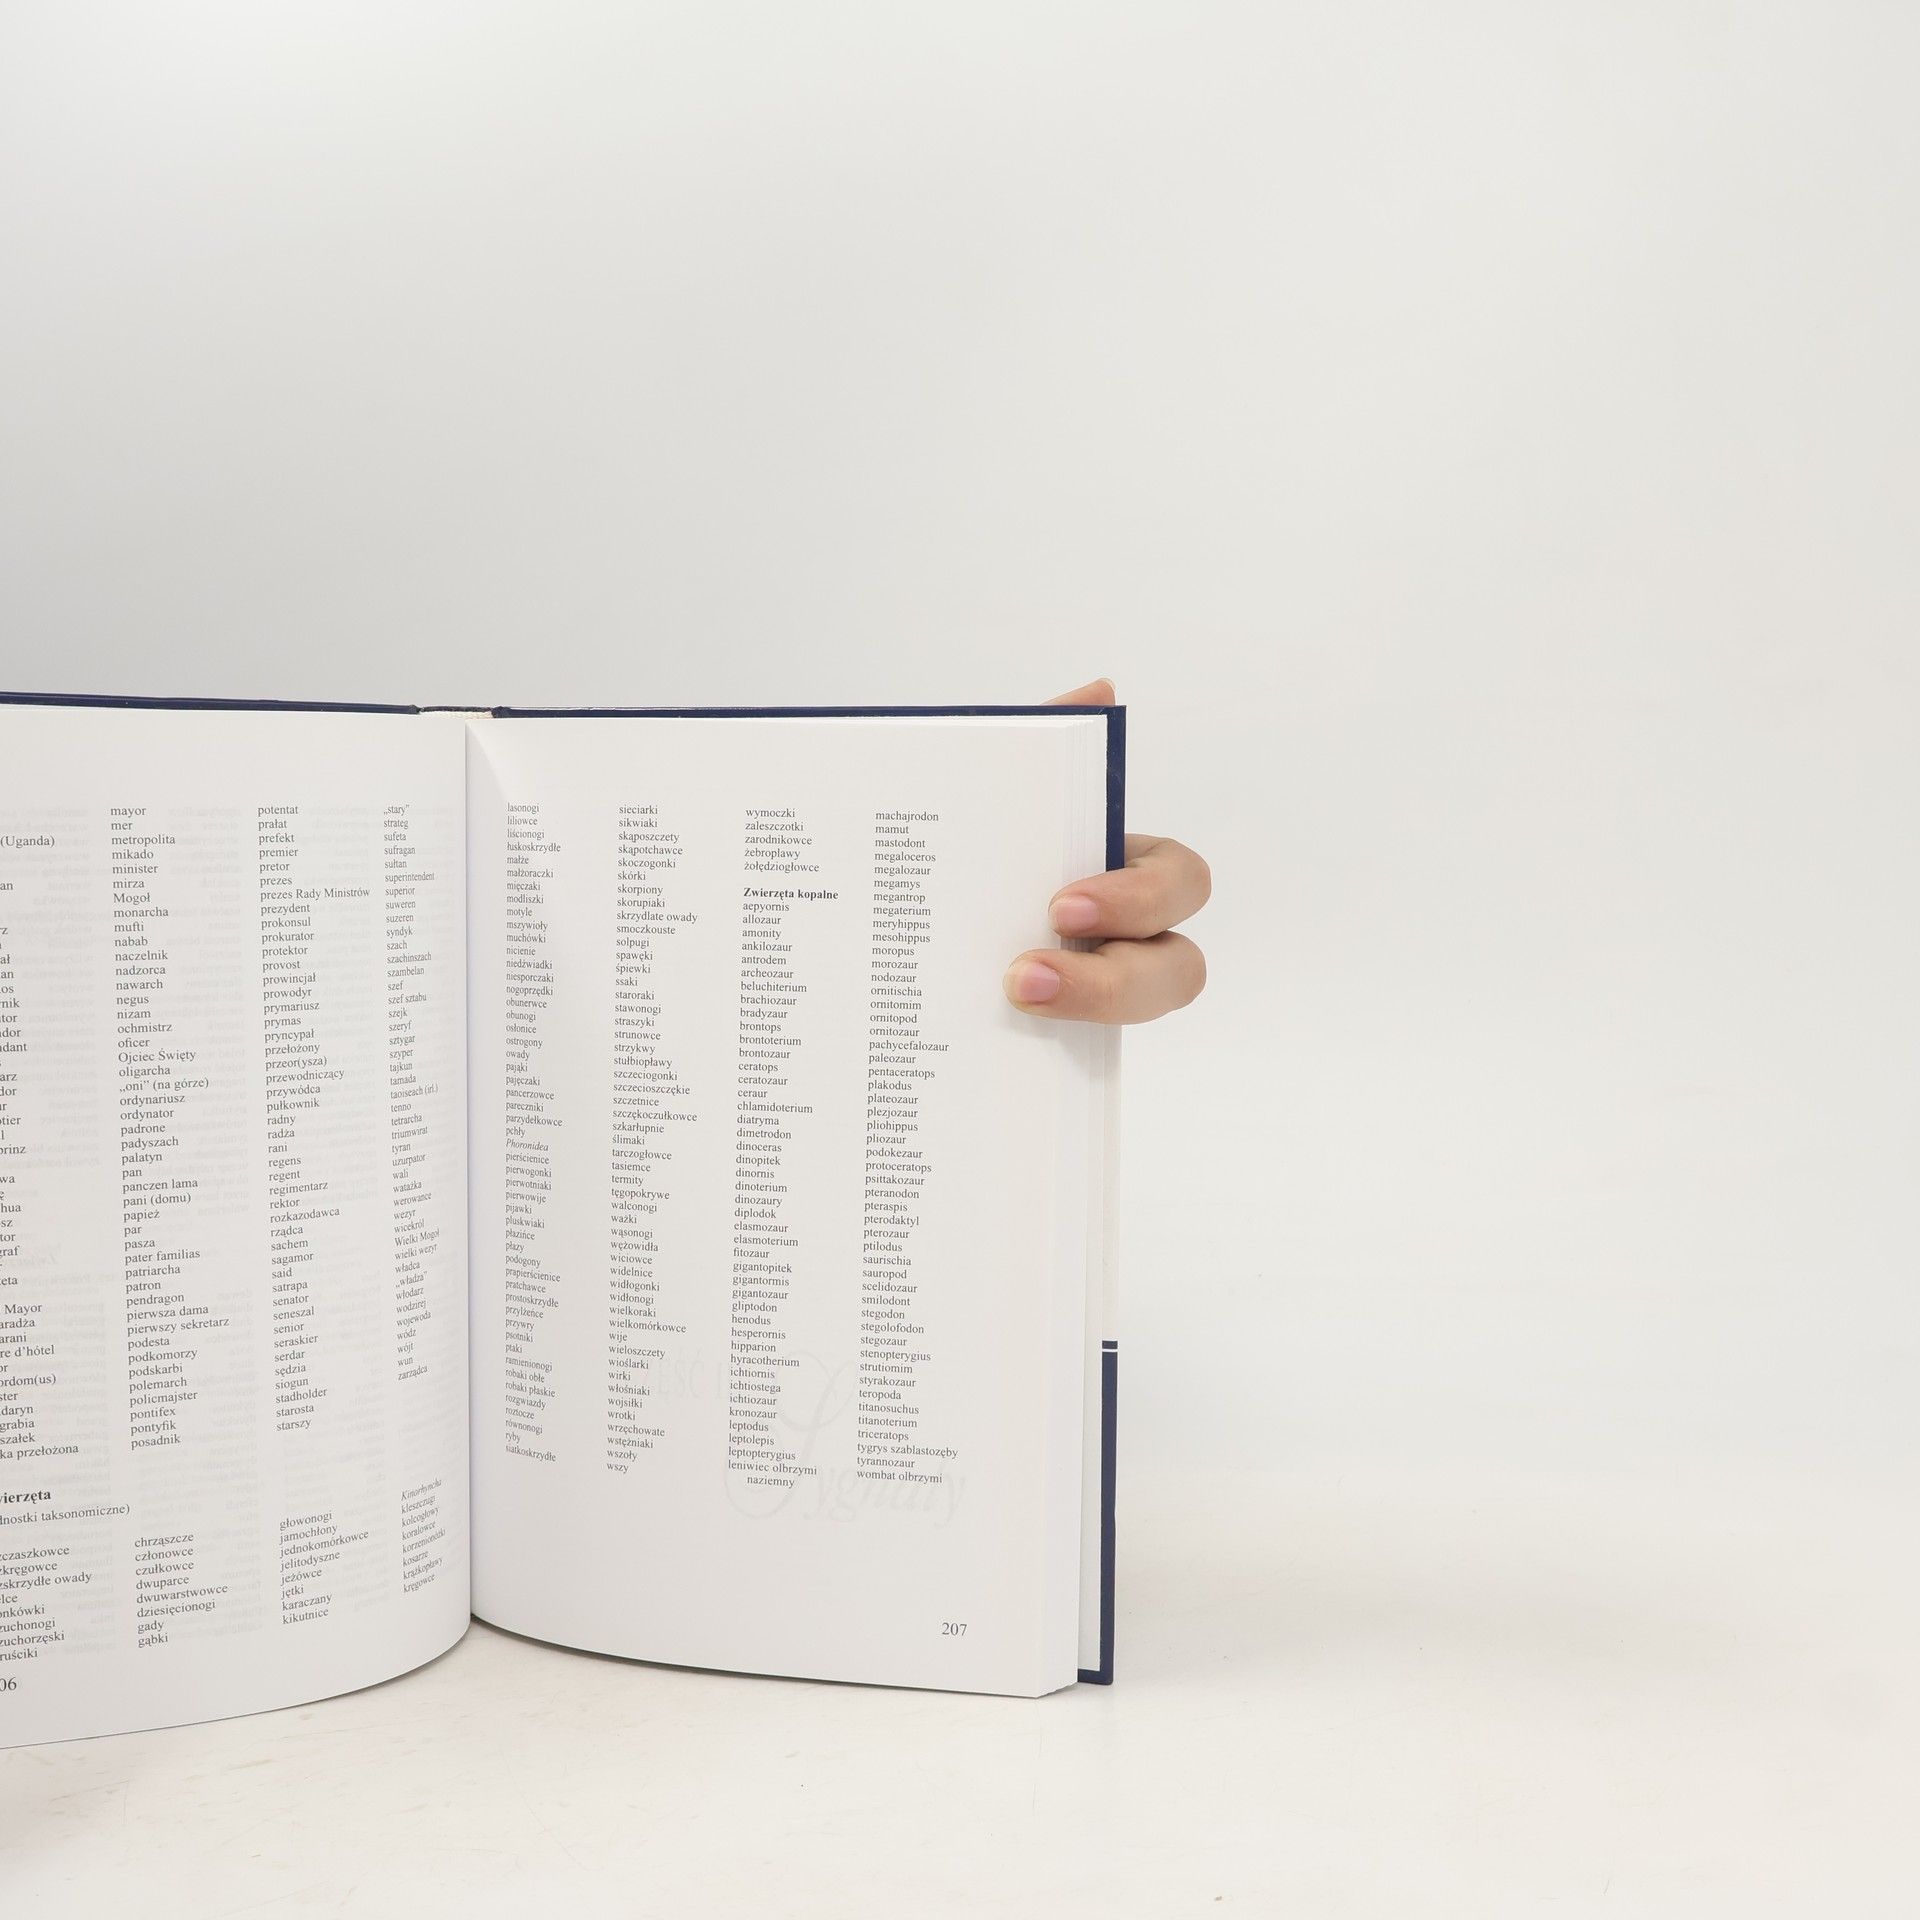 (Uganda)
mayor
mer
metropolita
mikado
minister
mirza
Mogoł
monarcha
mufti
nabab
naczelnik
nadzorca
nawarch
negus
nizam
ochmistrz
oficer
Ojciec Święty
oligarcha
„oni” (na górze)
ordynariusz
ordynator
padrone
padyszach
palatyn
pan
panczen lama
pani (domu)
papież
par
pasza
pater familias
patriarcha
patron
pendragon
pierwsza dama
pierwszy sekretarz
podesta
podkomorzy
podskarbi
polemarch
policmajster
pontifex
pontyfik
posadnik
potentat
prałat
prefekt
premier
pretor
prezes
prezes Rady Ministrów
prezydent
prokonsul
prokurator
protektor
provost
prowincjał
prowodyr
prymariusz
prymas
pryncypał
przełożony
przeor(ysza)
przewodniczący
przywódca
pułkownik
radny
radża
rani
regens
regent
regimentarz
rektor
rozkazodawca
rządca
sachem
sagamor
said
satrapa
senator
seneszal
senior
seraskier
serdar
sędzia
siogun
stadholder
starosta
starszy
„stary”
strateg
sufeta
sufragan
sułtan
superintendent
superior
suweren
suzeren
syndyk
szach
szachinszach
szambelan
szef
szef sztabu
szejk
szeryf
sztygar
szyper
tajkun
tamada
taoiseach (irl.)
tenno
tetrarcha
triumwirat
tyran
uzurpator
wali
watażka
werowance
wezyr
wicekról
Wielki Mogoł
wielki wezyr
władca
„władza”
włodarz
wodzirej
wojewoda
wódz
wójt
wun
zarządca
Mayor
d’hôtel
przełożona
taksonomiczne)
owady
chrząszcze
członowce
czułkowce
dwuparce
dwuwarstwowce
dziesięcionogi
gady
gąbki
głowonogi
jamochłony
jednokomórkowce
jelitodyszne
jeżówce
jętki
karaczany
kikutnice
Kinorhyncha
kleszczugi
kolcogłowy
koralowce
korzenionóżki
kosarze
krążkopławy
kręgowce
lasonogi
liliowce
liścionogi
łuskoskrzydłe
małże
małżoraczki
mięczaki
modliszki
motyle
mszywioły
muchówki
nicienie
niedźwiadki
niesporczaki
nogoprzędki
obunerwce
obunogi
osłonice
ostrogony
owady
pająki
pajęczaki
pancerzowce
pareczniki
parzydełkowce
pchły
Phoronidea
pierścienice
pierwogonki
pierwotniaki
pierwowije
pijawki
pluskwiaki
płazińce
płazy
podogony
prapierścienice
pratchawce
prostoskrzydłe
przylżeńce
przywry
psotniki
ptaki
ramienionogi
robaki obłe
robaki płaskie
rozgwiazdy
roztocze
równonogi
ryby
siatkoskrzydłe
sieciarki
sikwiaki
skąposzczety
skąpotchawce
skoczogonki
skórki
skorpiony
skorupiaki
skrzydlate owady
smoczkouste
solpugi
spawęki
śpiewki
ssaki
staroraki
stawonogi
straszyki
strunowce
strzykwy
stułbiopławy
szczeciogonki
szczecioszczękie
szczetnice
szczękoczułkowce
szkarłupnie
ślimaki
tarczogłowce
tasiemce
termity
tęgopokrywe
walconogi
ważki
wąsonogi
wężowidła
wiciowce
widelnice
widłogonki
widłonogi
wielkoraki
wielkomórkowce
wije
wieloszczety
wioślarki
wirki
włośniaki
wojsiłki
wrotki
wrzęchowate
wstężniaki
wszoły
wszy
wymoczki
zaleszczotki
zarodnikowce
żebropławy
żołędziogłowce
Zwierzęta kopalne
aepyornis
allozaur
amonity
ankilozaur
antrodem
archeozaur
beluchiterium
brachiozaur
bradyzaur
brontops
brontoterium
brontozaur
ceratops
ceratozaur
ceraur
chlamidoterium
diatryma
dimetrodon
dinoceras
dinopitek
dinornis
dinoterium
dinozaury
diplodok
elasmozaur
elasmoterium
fitozaur
gigantopitek
gigantormis
gigantozaur
gliptodon
henodus
hesperornis
hipparion
hyracotherium
ichtiornis
ichtiostega
ichtiozaur
kronozaur
leptodus
leptolepis
leptopterygius
leniwiec olbrzymi
naziemny
machajrodon
mamut
mastodont
megaloceros
megalozaur
megamys
megantrop
megaterium
meryhippus
mesohippus
moropus
morozaur
nodozaur
ornitischia
ornitomim
ornitopod
ornitozaur
pachycefalozaur
paleozaur
pentaceratops
plakodus
plateozaur
plezjozaur
pliohippus
pliozaur
podokezaur
protoceratops
psittakozaur
pteranodon
pteraspis
pterodaktyl
pterozaur
ptilodus
saurischia
sauropod
scelidozaur
smilodont
stegodon
stegolofodon
stegozaur
stenopterygius
strutiomim
styrakozaur
teropoda
titanosuchus
titanoterium
triceratops
tygrys szablastozęby
tyrannozaur
wombat olbrzymi
207